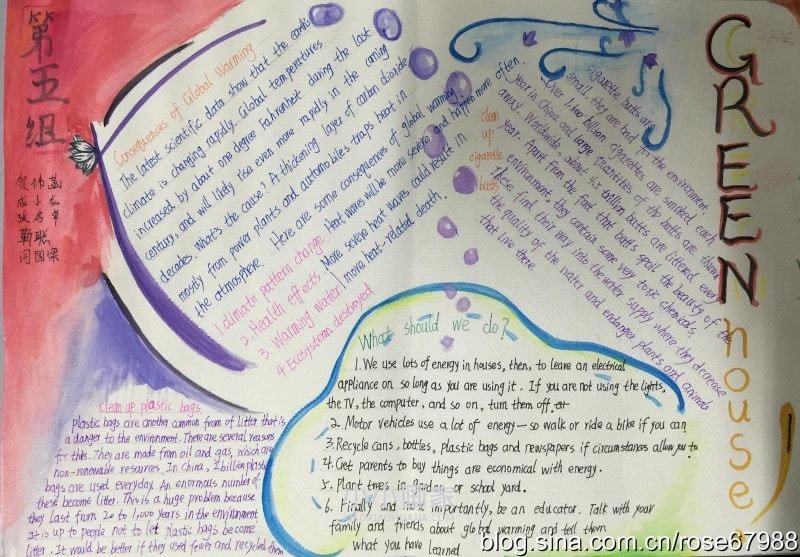 第五组
GREEN house
Consequences of Global Warming
The latest scientific data show that the earth's
climate is changing rapidly. Global temperatures
increased by about one degree Fahrenheit during the last
century, and will likely rise even more rapidly in the coming
decades. What's the cause? A thickening layer of carbon dioxide
mostly from power plants and automobiles traps heat in
the atmosphere. Here are some consequences of global warming
1. climate pattern change.
2. Health effects
3. Warming water
4. Ecosystem destroyed
Heat waves will be more severe and happen more often.
More severe heat waves could result in
more heat-related death.
clean
up
cigarette
butts
cigarette butts are
small they are bad for the environment.
Over 1,600 billion cigarettes are smoked each
year in China and large quantities of the butts are thrown
away. Worldwide about 4.5 trillion butts are littered every
year. Apart from the fact that butts spoil the beauty of the
environment, they contain some very toxic chemicals.
These find their way into the water supply where they decrease
the quality of the water and endanger plants and animals
that live there.
What should we do?
1. We use lots of energy in houses, then, to leave an electrical
appliance on so long as you are using it. If you are not using the lights,
the TV, the computer, and so on, turn them off.
2. Motor vehicles use a lot of energy—so walk or ride a bike if you can
3. Recycle cans, bottles, plastic bags and newspapers if circumstances allow you to
4. Get parents to buy things are economical with energy.
5. Plant trees in garden or school yard.
6. Finally and most importantly, be an educator. Talk with your
family and friends about global warming and tell them
what you have learned
clean up plastic bags
plastic bags are another common from of litter that is
a danger to the environment. There are several reasons
for this. They are made from oil and gas, which are
non-renewable resources. In China, 2 billion plastic
bags are used everyday. An enormous number of
these become litter. This is a huge problem because
they last from 20 to 1,000 years in the environment
it is up to people not to let plastic bags become
litter. It would be better if they used fewer and recycled them
blog.sina.com.cn/rose67988